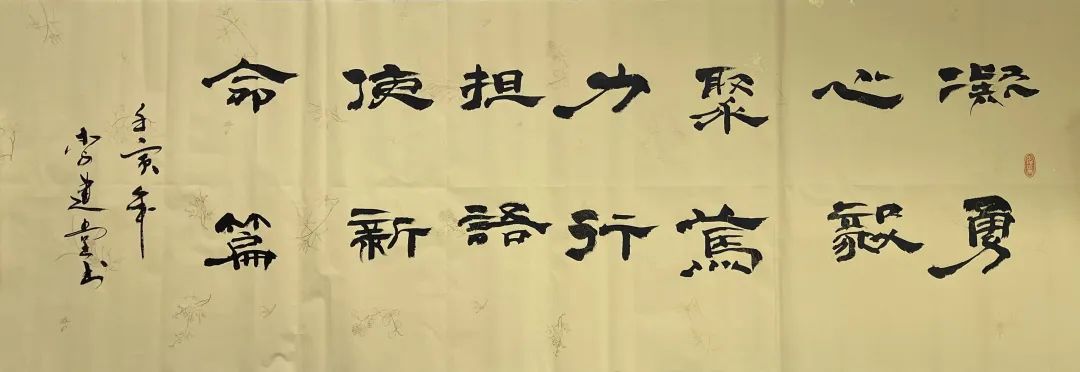 凝心聚力担使命
勇毅篤行譜新篇
壬寅年
李建堂书